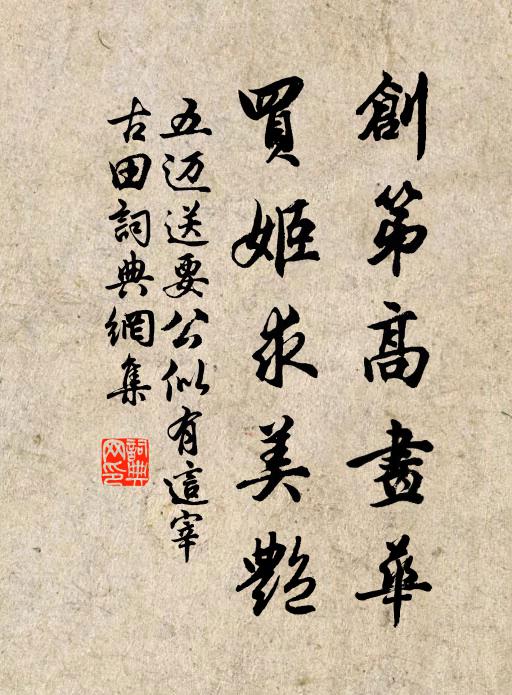 創第高畫華
買姬求美艷
五迈送要公似有這宰
古田詞典網集
詞典网印